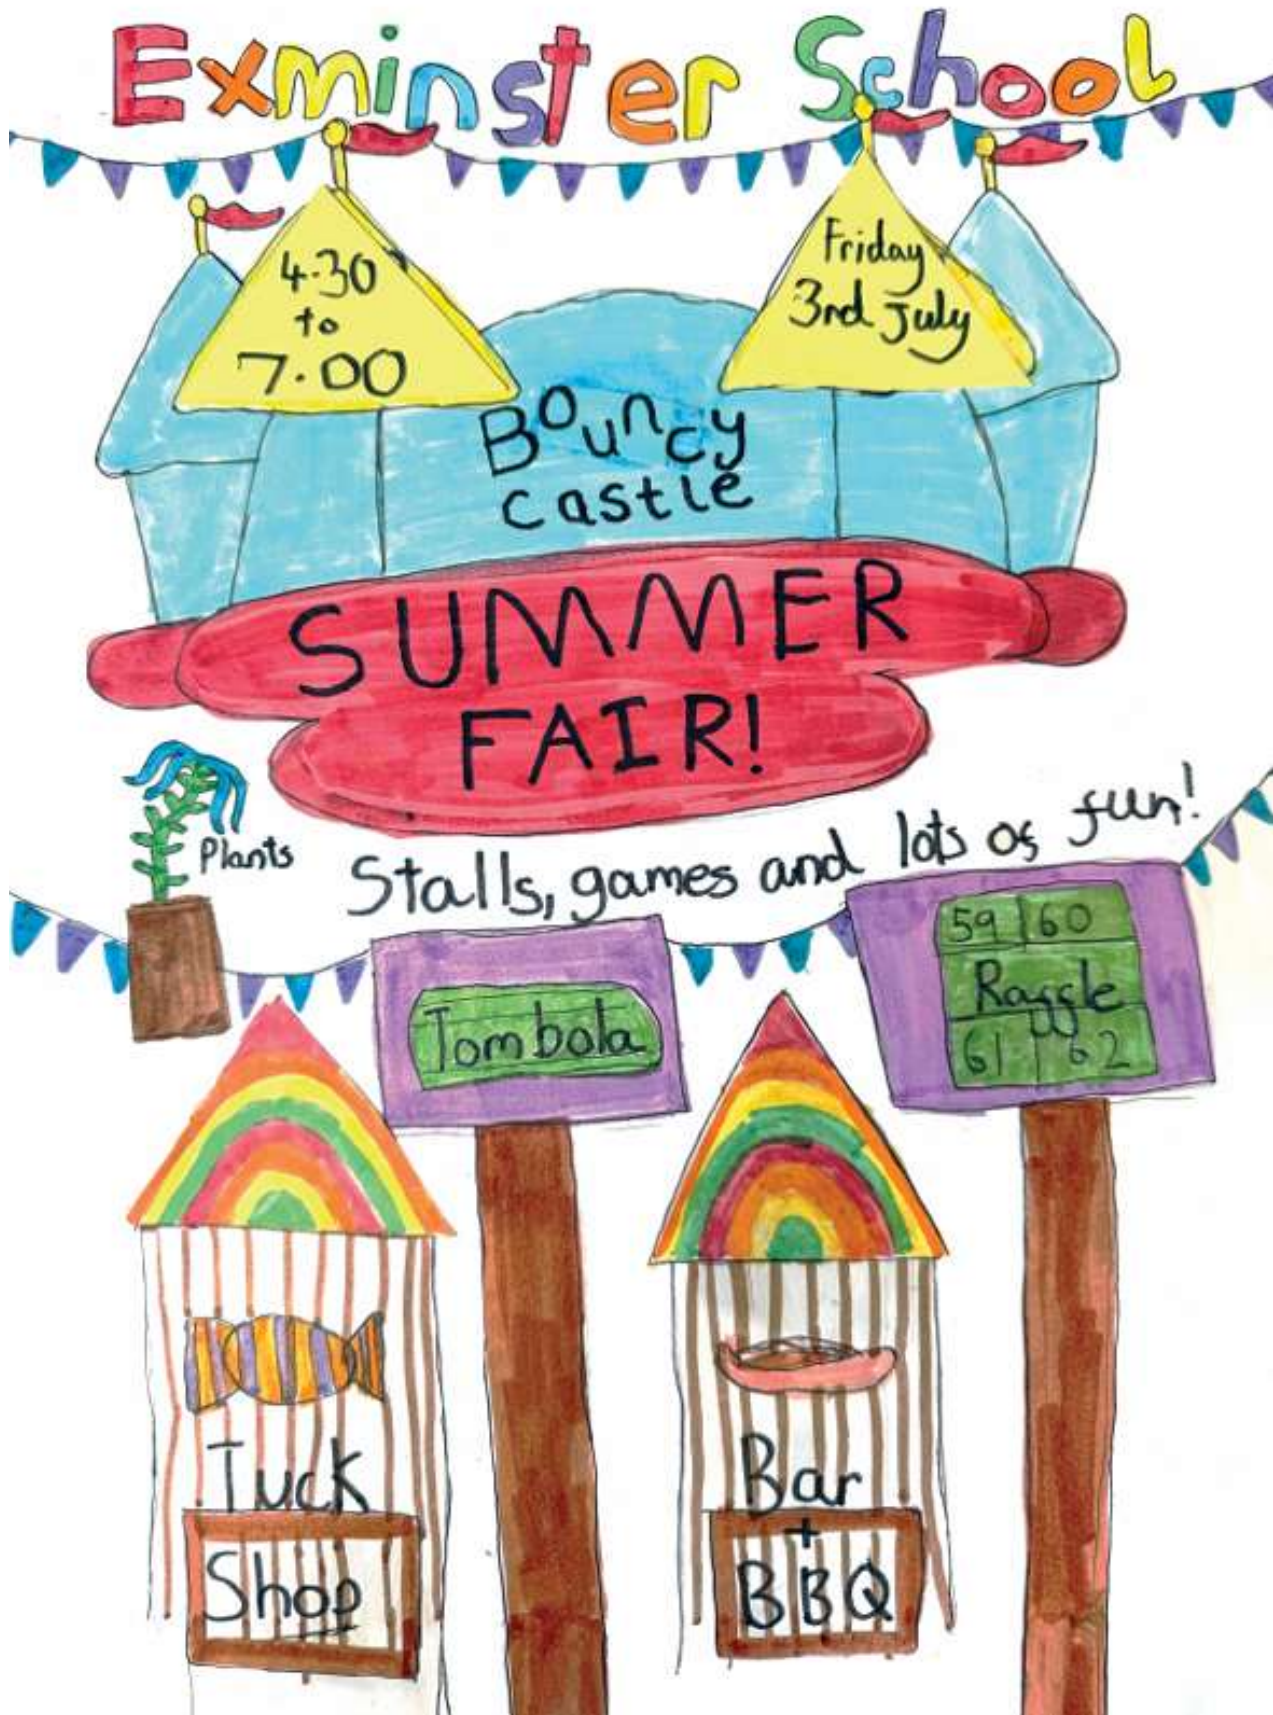 Exminster School
4.30
to
7.00
Friday
3rd July
Bouncy
castle
SUMMER
FAIR!
Plants
Stalls, games and lots of fun!
Tombola
59 60
Raffle
61 62
Tuck
Shop
Bar
+
BBQ